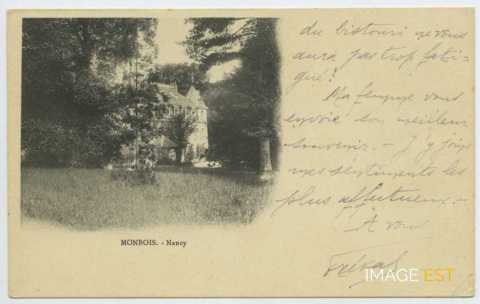 du bistouri ne vous
aura pas trop fati-
gué!
Ma femme vous
envoie son meilleur
souvenir. - J'y joins
mes sentiments les
plus affectueux. -
A vous
MONBOIS. - Nancy
IMAGE EST